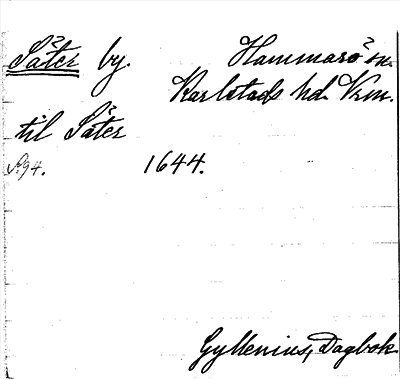 Säter by. Hammarö sn.
Karlstads hd. Vrm.
til Säter
S. 94. 1644.
Gyllenius, Dagbok